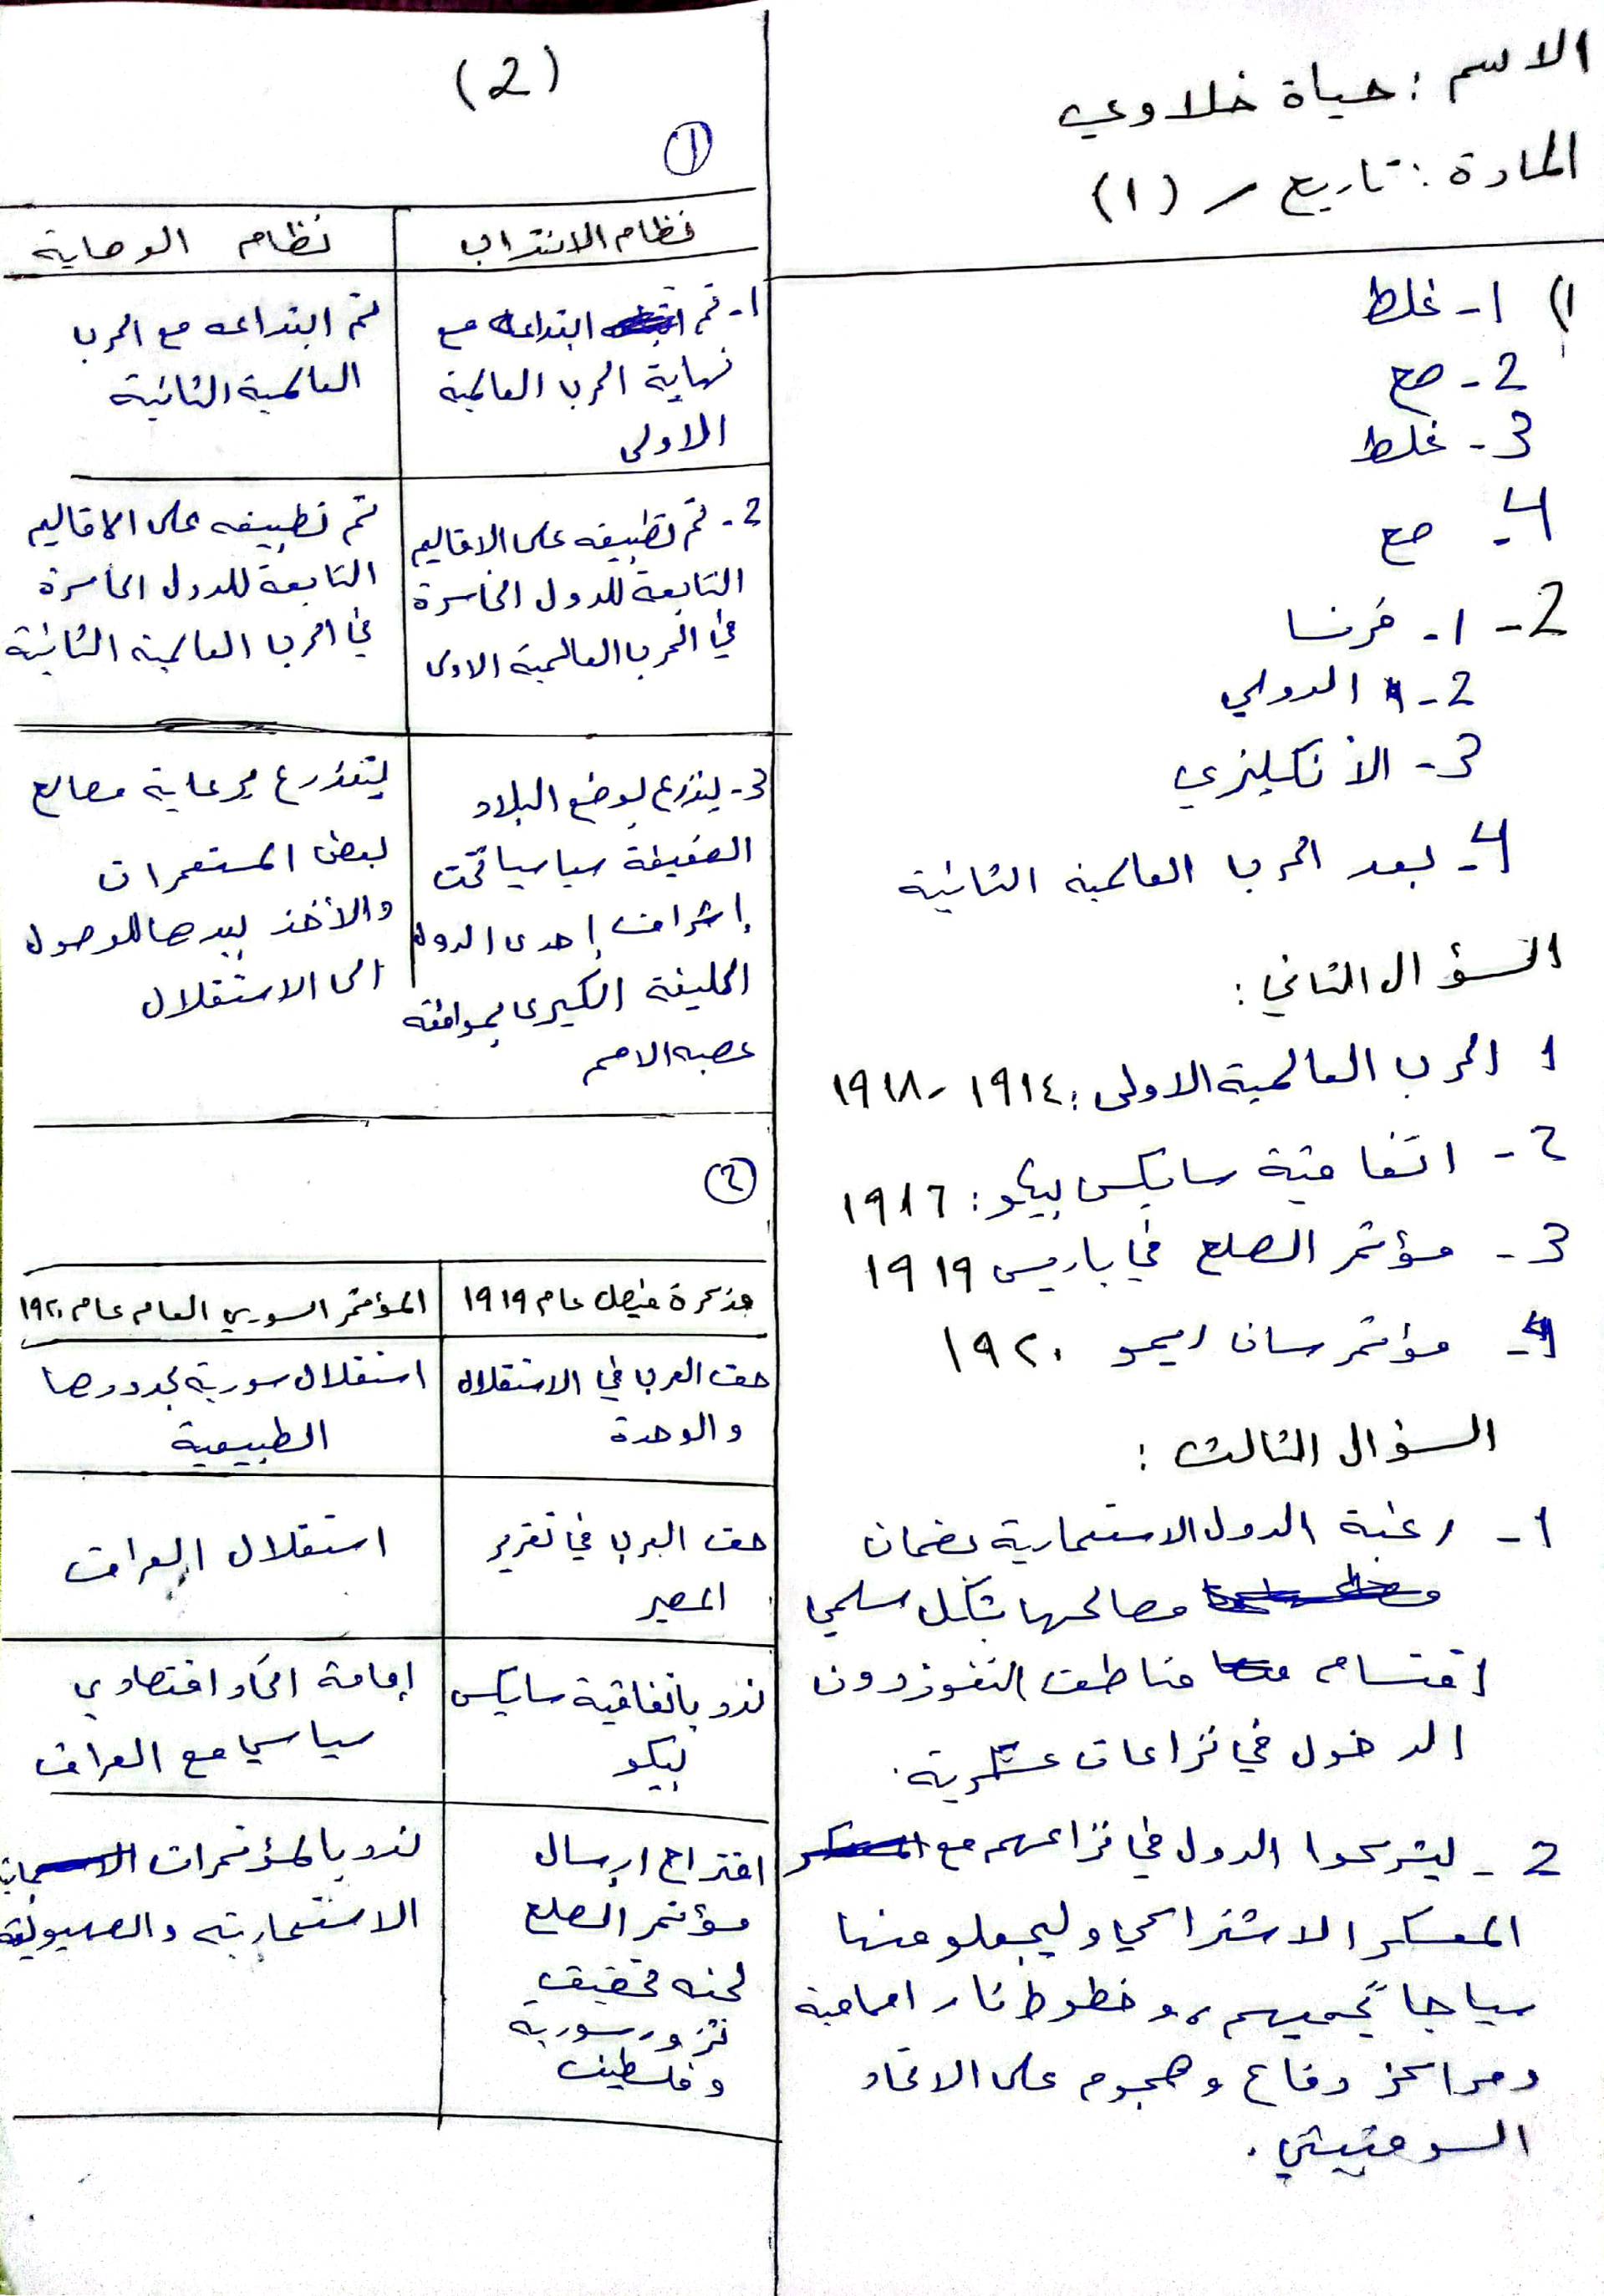 الاسم : حياة خلاوي
المادة : تاريخ / (١)
١) ١- غلط
2- صح
3- غلط
4- صح
2- ١- فرنسا
2- الدولي
3- الأنكليزي
4- بعد الحرب العالمية الثانية
السؤال الثاني :
١ الحرب العالمية الاولى : ١٩١٤ - ١٩١٨
٢- اتفاقية سايكس بيكو : ١٩١٦
3- مؤتمر الصلح في باريس ١٩١٩
4- مؤتمر سان ريمو ١٩٢٠
السؤال الثالث :
١- رغبة الدول الاستعمارية بضمان
مصالحها بشكل سلمي
اقتسام مناطق النفوذ دون
الدخول في نزاعات عسكرية .
2- ليشركوا الدول في نزاعهم مع
المعسكر الاشتراكي وليجعلو منها
سياجاً يحميهم ، وخطوط نار امامية
ومراكز دفاع وهجوم على الاتحاد
السوفييتي .
(2)
①
نظام الانتداب | نظام الوصاية
١- تم ابتداعه مع | تم ابتداعه مع الحرب
نهاية الحرب العالمية | العالمية الثانية
الاولى
2- تم تطبيقه على الاقاليم | تم تطبيقه على الاقاليم
التابعة للدول الخاسرة | التابعة للدول الخاسرة
في الحرب العالمية الاولى | في الحرب العالمية الثانية
3- يتذرع بوضع البلاد | يتذرع برعاية مصالح
الضعيفة سياسيا تحت | بعض المستعمرات
إشراف إحدى الدول | والأخذ بيدها للوصول
الحليفة الكبرى بموافقة | الى الاستقلال
عصبه الامم
②
مذكرة فيصل عام ١٩١٩ | المؤتمر السوري العام عام ١٩٢٠
حق العرب في الاستقلال | استقلال سورية بحدودها
والوحدة | الطبيعية
حق العرب في تقرير | استقلال العراق
المصير
ندد باتفاقية سايكس | إقامة اتحاد اقتصادي
بيكو | سياسي مع العراق
اقتراح ارسال | ندد بالمؤتمرات
مؤتمر الصلح | الاستعمارية والصهيونية
لجنه تحقيق
تزور سورية
وفلسطين